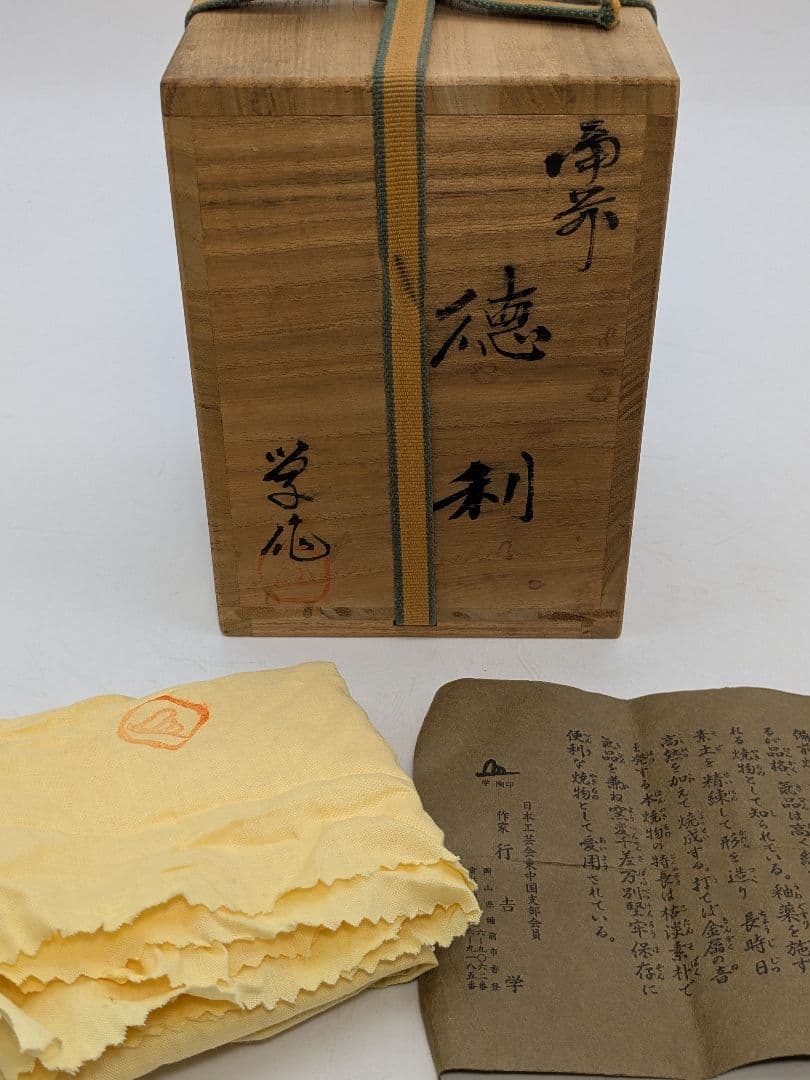 備前
徳利
学作
るが品格、気品は高く
れる焼物として知られている。釉薬を施す
素土を精練して形を造り長時日
高熱を加えて焼成する。打てば金属の音
を発する本焼物の特長は枯淡素朴で
気品を兼ね窯変千差万別堅牢保存に
便利な焼物として愛用されている。
学 陶印
日本工芸会東中国支部会員
作家 行吉 学
岡山県備前市香登